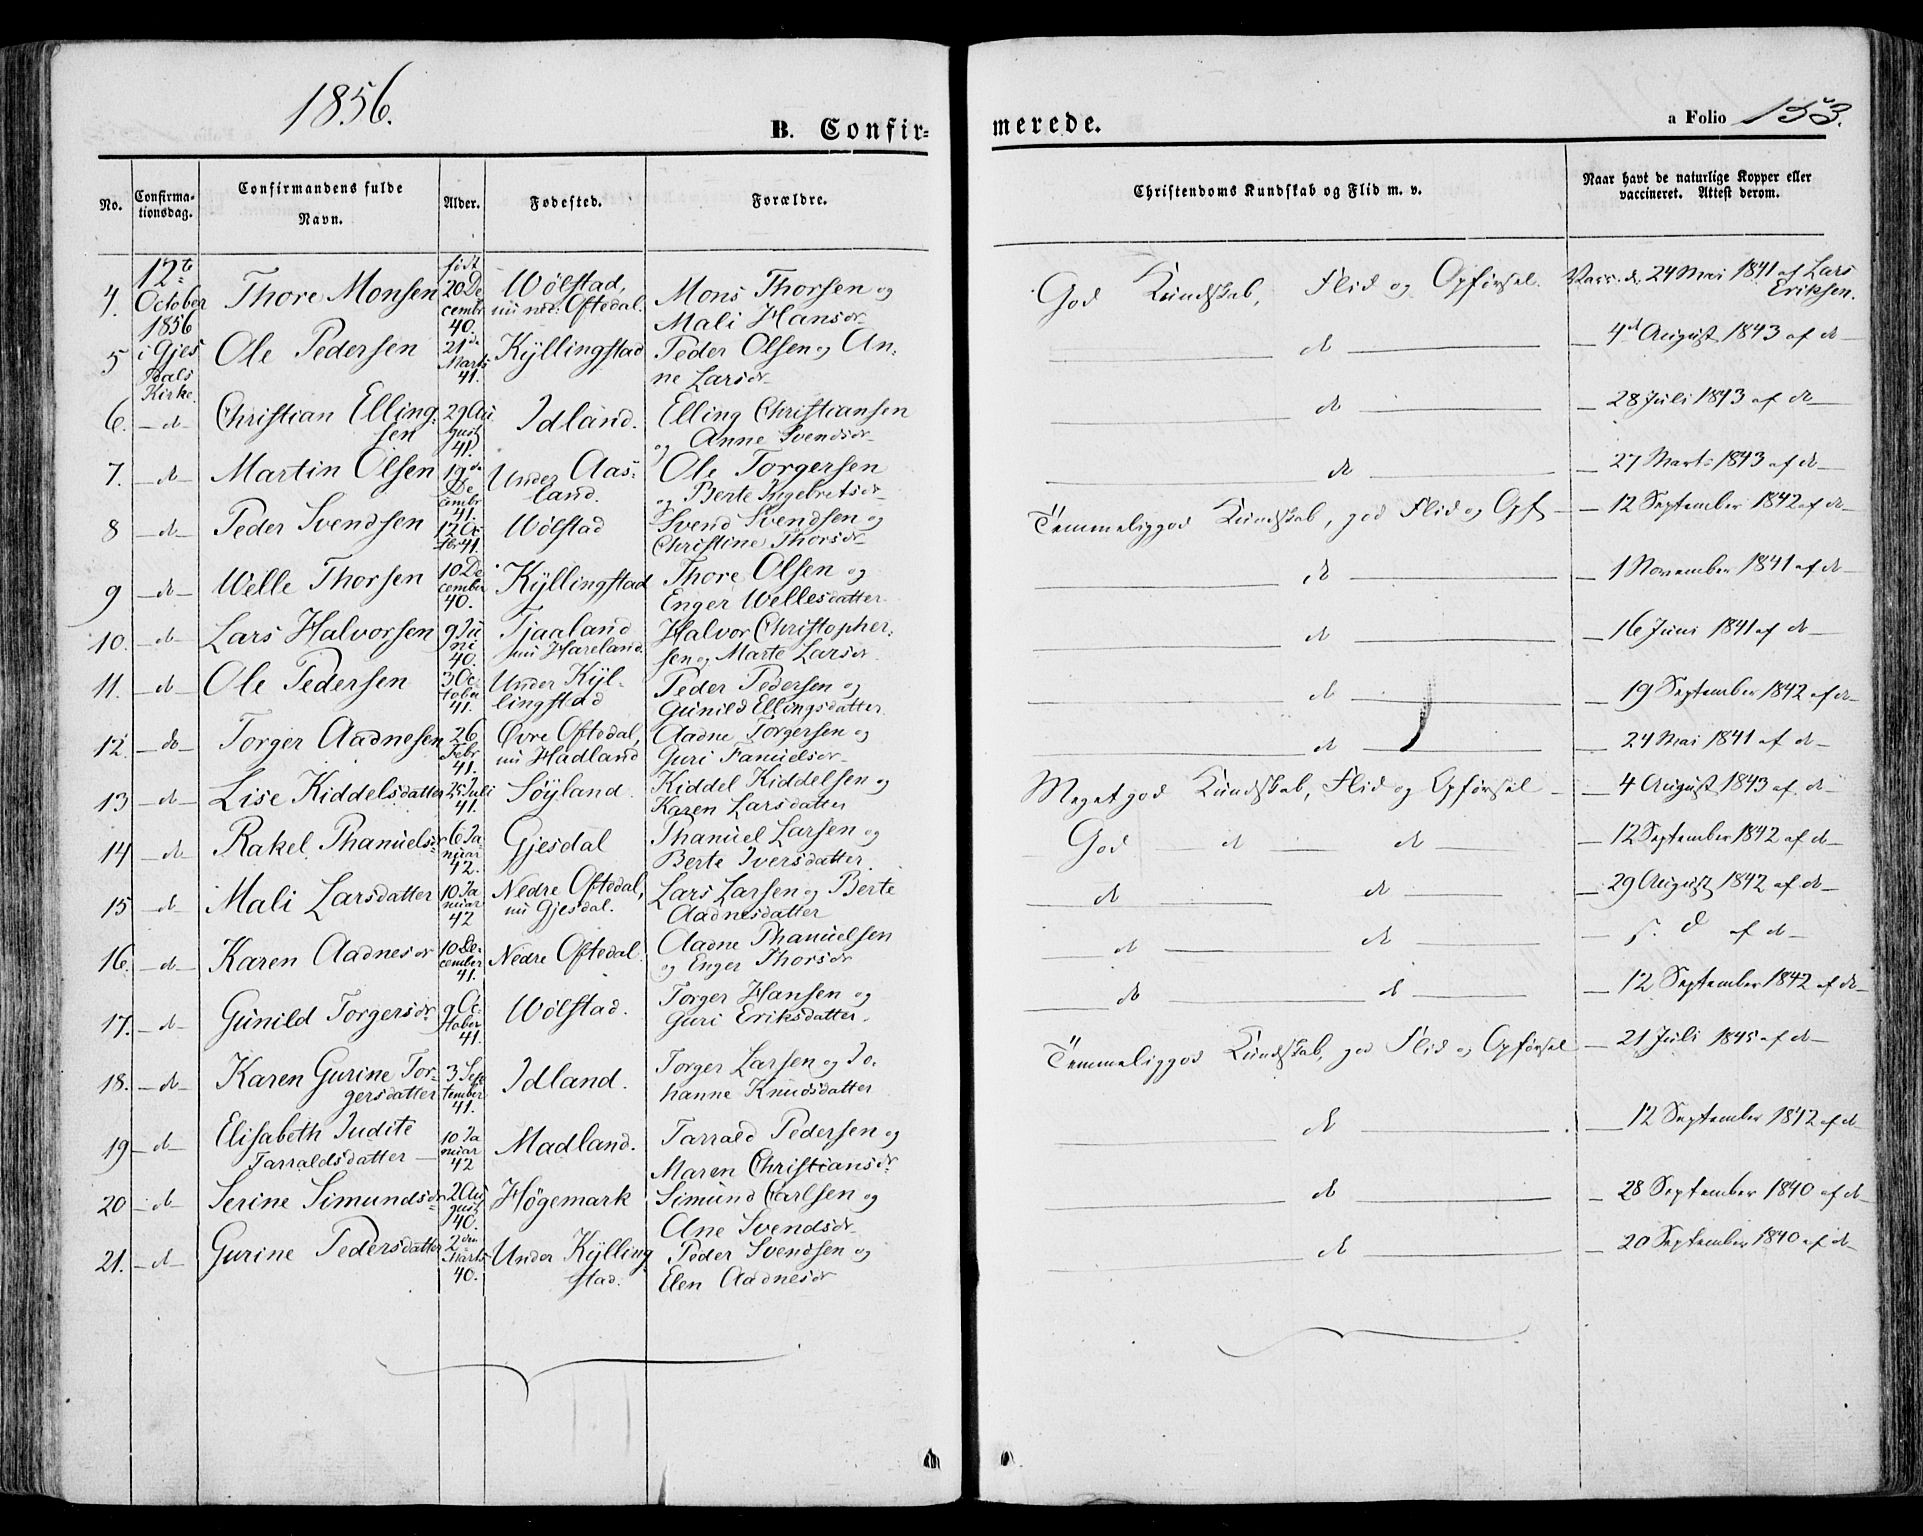 1856.
B. Confirmerede.
a Folio 153.
No. Confirmationsdag. Confirmandens fulde Navn. Alder. Fødested. Forældre. Christendoms Kundskab og Flid m. v. Naar havt de naturlige Kopper eller vaccineret. Attest derom.
4. 12te October 1856 i Gjesdals Kirke Thore Monsen født 20 December 40. Wølstad, nu ned: Oftedal. Mons Thorsen og Mali Hansdr God Kundskab, Flid og Opførsel. Vacc. d. 24 Mai 1841 af Lars Eriksen.
5 Ole Pedersen 21de Marts 41. Kyllingstad Peder Olsen og Anne Larsdr — do — — 4de August 1843 af do —
6. — do — Christian Ellingsen 29 August 41. Idland. Elling Christiansen og Anne Svendsdr — do — — 28 Juli 1843 af do —
7. — do — Martin Olsen 19de Decembr 41. Under Aasland. Ole Torgersen og Berte Ingebretsdr — do — — 27 Marts 1843 af do —
8 — do — Peder Svendsen 12 Octbr 41. Wølstad Svend Svendsen og Christine Thorsdr Temmeliggod Kundskab, god Flid og Opf — — 12 September 1842 af do —
9 — do — Welle Thorsen 10 December 40. Kyllingstad Thore Olsen og Enger Wellesdatter — do — — 1 November 1841 af do —
10. — do — Lars Halvorsen 9 Juni 40. Tjaaland nu Hareland. Halvor Christophersen og Marte Larsdr — do — — 16 Juni 1841 af do —
11. — do — Ole Pedersen 3 October 41. Under Kyllingstad Peder Pedersen og Gunild Ellingsdatter — do — — 19 September 1842 af do —
12. — do — Torger Aadnesen 26 Febr 41. Øvre Oftedal, nu Madland Aadne Torgersen og Guri Fanuelsdr — do — — 24 Mai 1841 af do —
13 — do — Lise Kiddelsdatter 25 Juli 41. Søyland. Kiddel Kiddelsen og Karen Larsdatter Megetgod Kundskab, Flid og Opførsel — — 4 August 1843 af do
14 — do — Rakel Thanuelsdr 6 Januar 42. Gjesdal Thanuel Larsen og Berte Iversdatter. God — do — do — — 12 September 1842 af do —
15 — do Mali Larsdatter 10 Januar 42 Nedre Oftedal, nu Gjesdal. Lars Larsen og Berte Aadnesdatter — do — do — — 29 August 1842 af do —
16. — do — Karen Aadnesdr 10 December 41. Nedre Oftedal. Aadne Thanuelsen og Enger Thorsdr — do — do — — s. d af do —
17. — do — Gunild Torgersdr. 9 October 41. Wølstad. Torger Hansen og Guri Eriksdatter. — do — do — — 12 September 1842 af do —
18. — do — Karen Gurine Torgersdatter 3 September 41. Idland. Torger Larsen og Johanne Knudsdatter Temmeliggod Kundskab, god Flid og Opførsel — 21 Juli 1845 af do —
19 — do — Elisabeth Judite Tarraldsdatter — 10 Januar 42 Madland. Tarrald Pedersen og Maren Christiansdr — do — — 12 September 1842 af do —
20 — do — Serine Simundsdr 2 August 40. Høgemark Simund Carlsen og Ane Svendsdr — do — — 28 September 1840 af do —
21. — do — Gurine Pedersdatter 2den Marts 40. Under Kyllingstad. Peder Svendsen og Elen Aadnesdr — do — — 20 September 1840 af do —